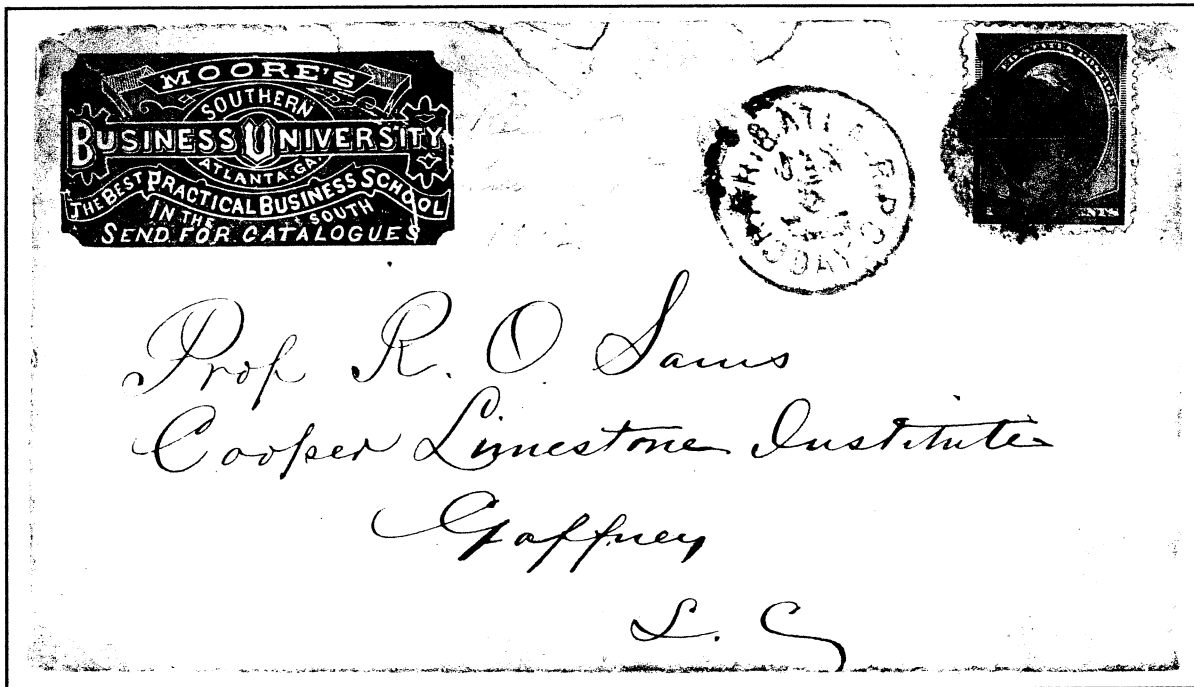 MOORE'S
SOUTHERN
BUSINESS UNIVERSITY
ATLANTA. GA.
THE BEST PRACTICAL BUSINESS SCHOOL
IN THE SOUTH
SEND FOR CATALOGUES
ATL. R.P.O.
JAN
DAY
CENTS
Prof R. O. Sams
Cooper Limestone Institute
Gaffney
S. C